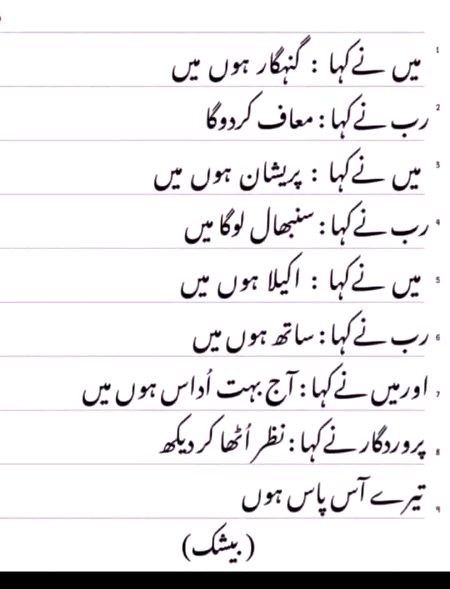 1 میں نے کہا : گنہگار ہوں میں
2 رب نے کہا : معاف کردوگا
3 میں نے کہا : پریشان ہوں میں
4 رب نے کہا : سنبھال لوگا میں
5 میں نے کہا : اکیلا ہوں میں
6 رب نے کہا : ساتھ ہوں میں
7 اورمیں نے کہا : آج بہت اُداس ہوں میں
8 پروردگار نے کہا : نظر اُٹھا کر دیکھ
9 تیرے آس پاس ہوں
(بیشک)